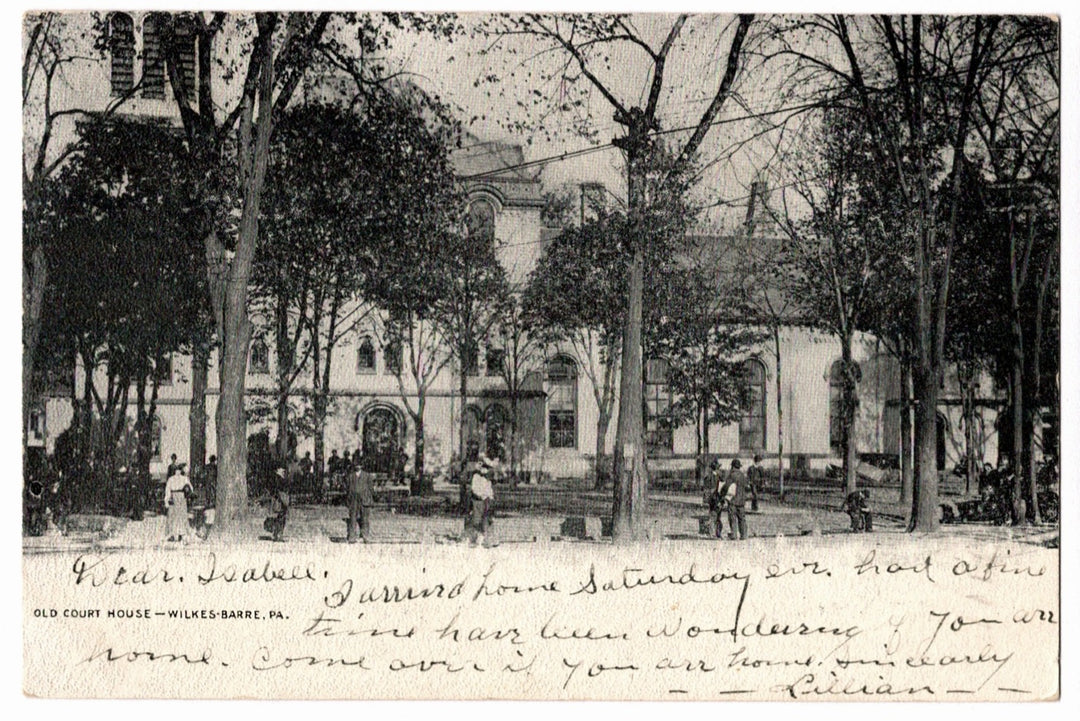 Dear. Isabell.
I arrived home Saturday eve. had a fine
OLD COURT HOUSE—WILKES-BARRE, PA.
time have been Wondering if You are
home. Come over if You are home. Sincearly
— — Lillian — —